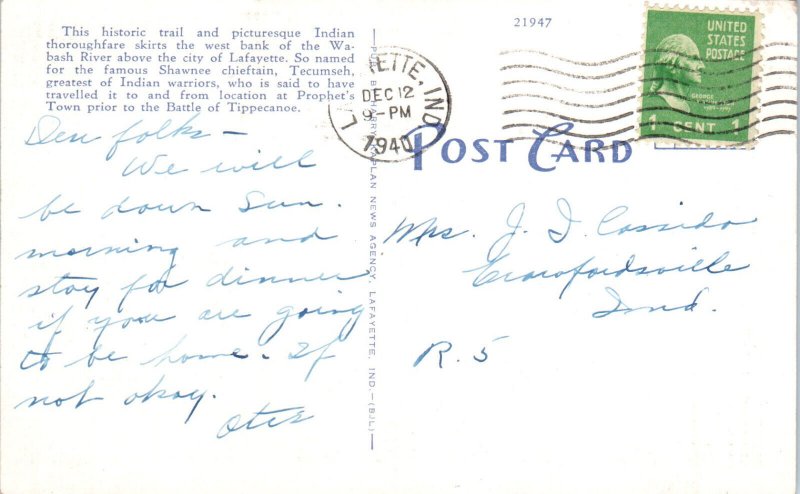 This historic trail and picturesque Indian
thoroughfare skirts the west bank of the Wa-
bash River above the city of Lafayette. So named
for the famous Shawnee chieftain, Tecumseh,
greatest of Indian warriors, who is said to have
travelled it to and from location at Prophet's
Town prior to the Battle of Tippecanoe.
Dear folks —
We will
be down Sun.
morning and
stay for dinner
if you are going
to be home. If
not okay.
Otis
NEWS AGENCY, LAFAYETTE, IND.—(B/L)
21947
ETTE, IND
DEC 12
9 - PM
1940
UNITED
STATES
POSTAGE
GEORGE
1 CENT 1
POST CARD
Mrs. J. D. Cassida
Crawfordsville
Ind.
R. 5